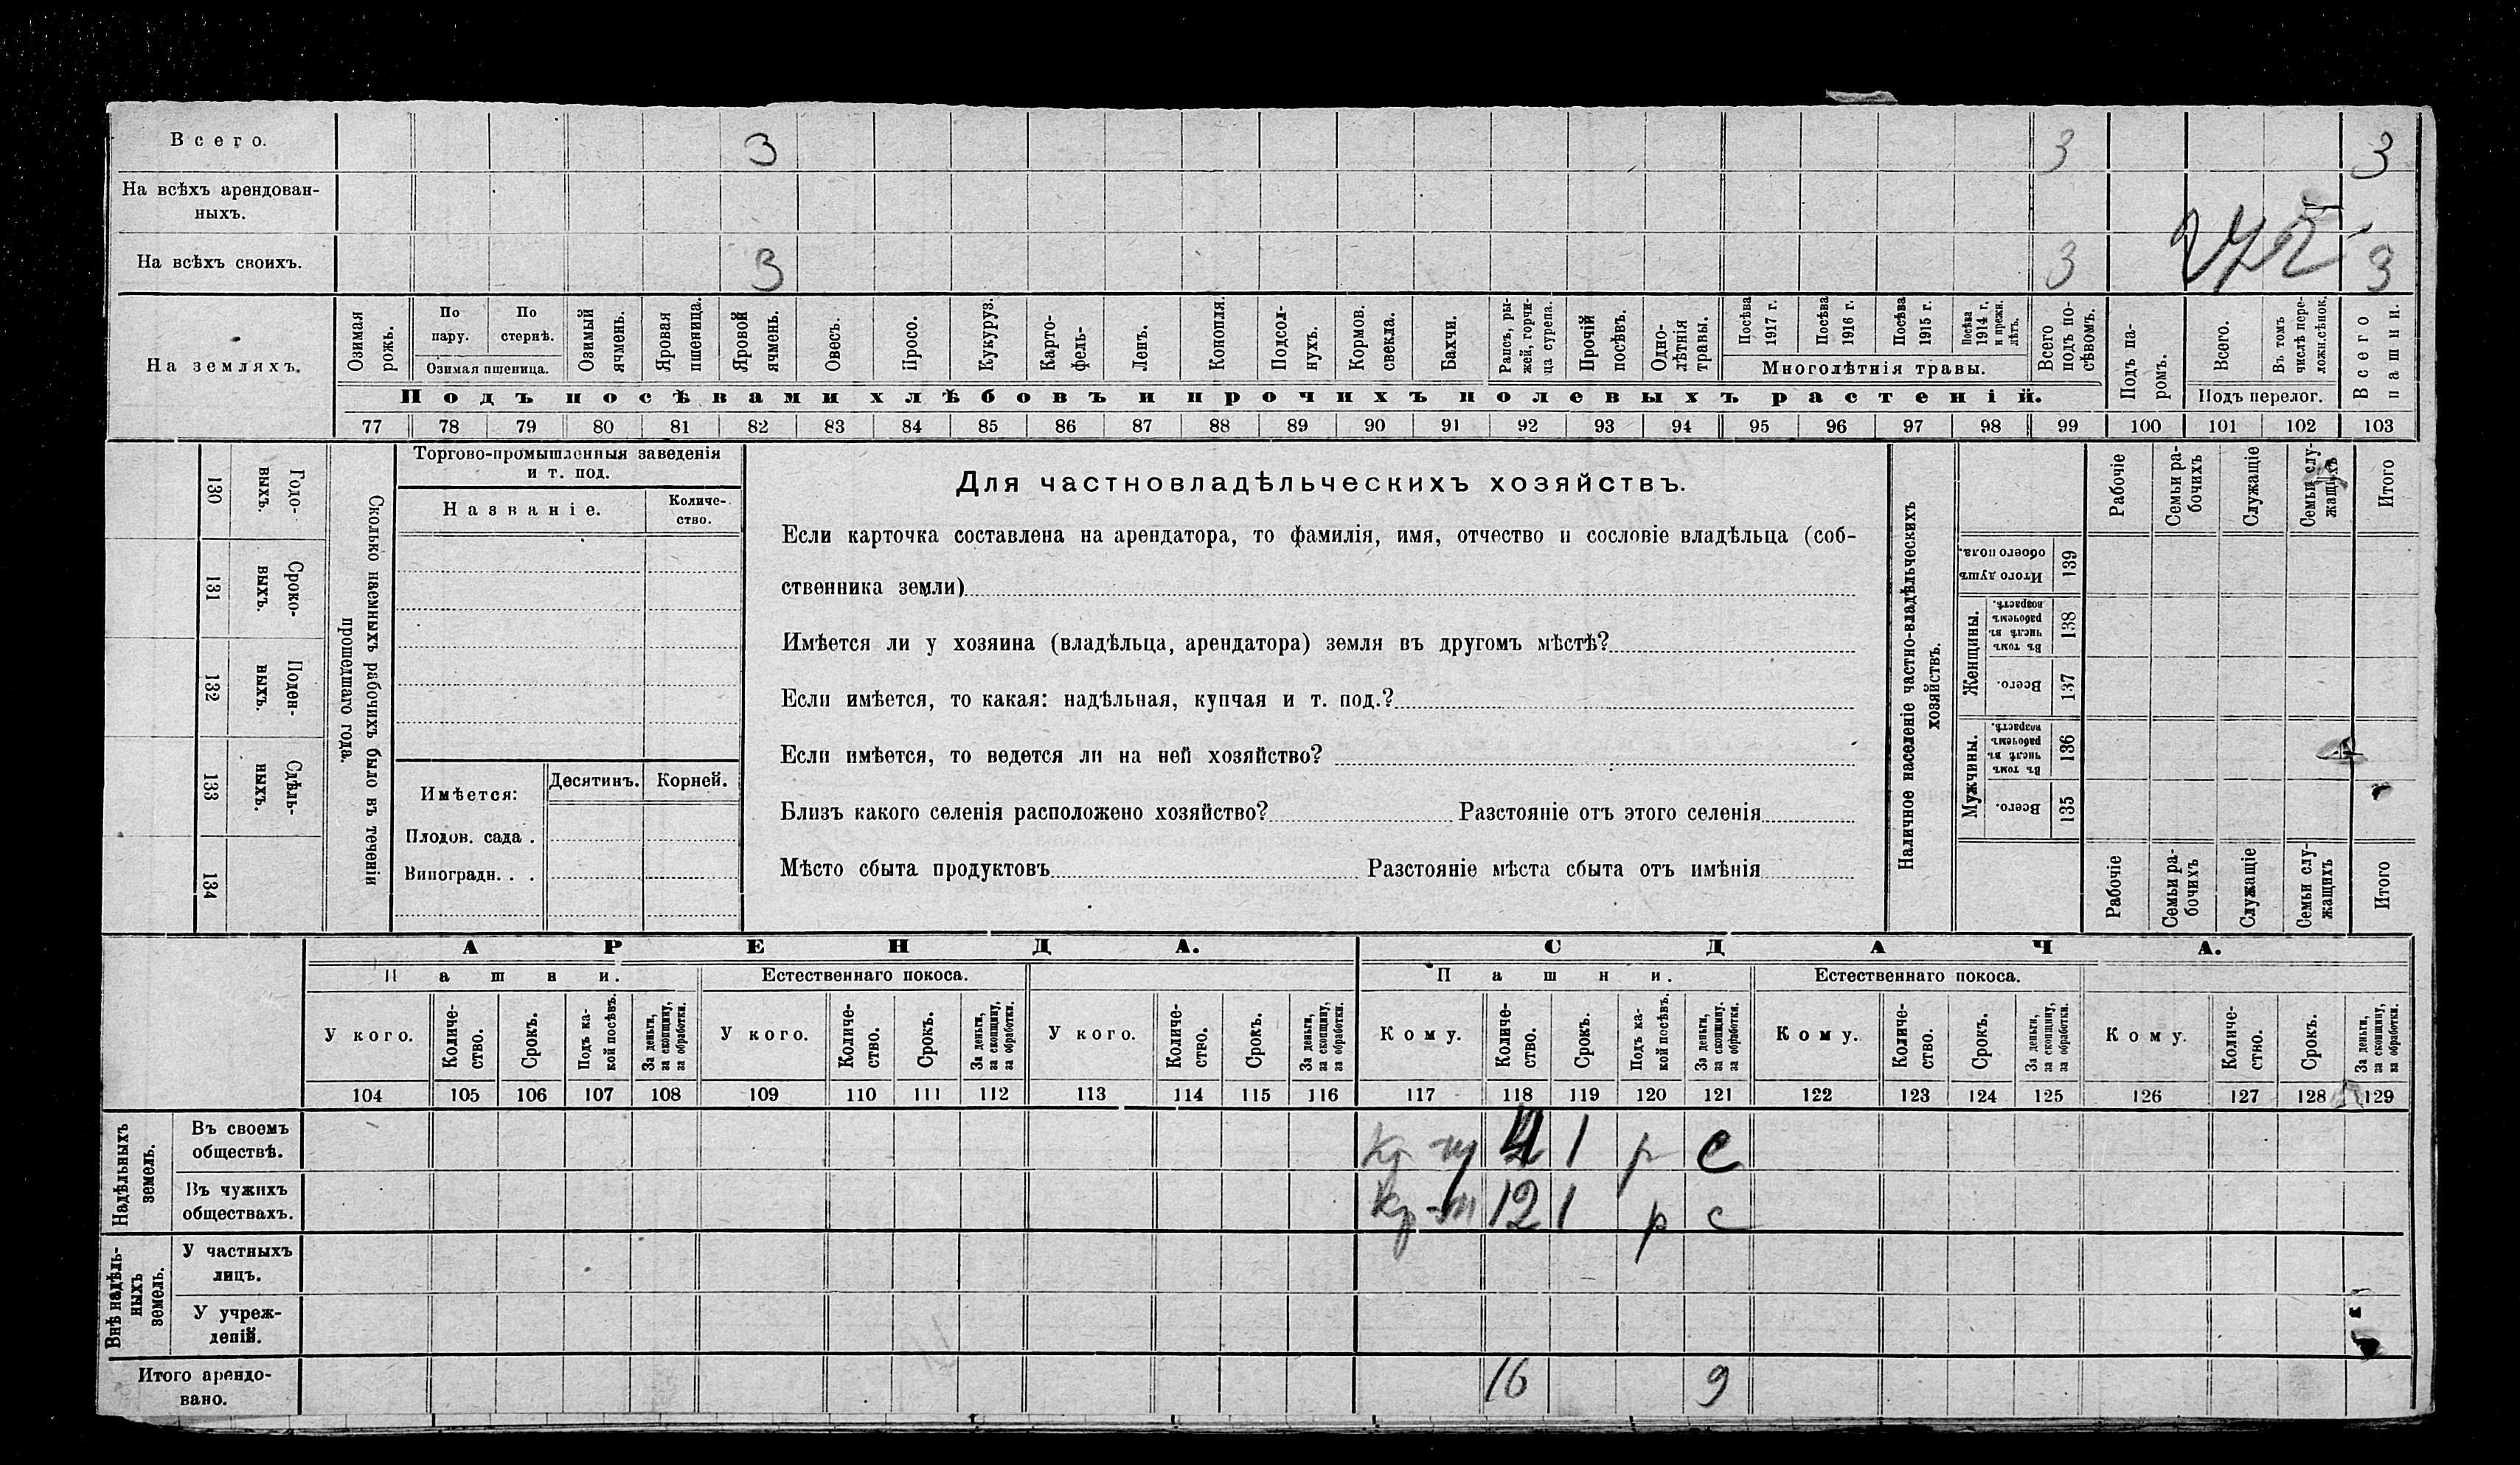 Всего. 3 3 3
На всѣхъ арендован-
ныхъ.
На всѣхъ своихъ. 3 3 3
На земляхъ.
Озимая рожь.
По пару.
По стернѣ.
Озимая пшеница.
Озимый ячмень.
Яровая пшеница.
Яровой ячмень.
Овесъ.
Просо.
Кукуруз.
Карто-
фель-
Ленъ.
Конопля.
Подсол-
нухъ.
Кормов.
свекла.
Бахчи.
Рапсъ, ры-
жей, горчи-
ца сурепа.
Прочій
посѣвъ.
Одно-
лѣтнія
травы.
Посѣва
1917 г.
Посѣва
1916 г.
Посѣва
1915 г.
Посѣва
1914 г.
и прежн.
лѣтъ.
Многолѣтнія травы.
Всего
подъ по-
сѣвомъ.
Подъ па-
ромъ.
Всего.
Въ томъ
числѣ пере-
ложн.сѣнок.
Подъ перелог.
Всего
пашни.
Подъ посѣвами хлѣбовъ и прочихъ полевыхъ растеній.
77 78 79 80 81 82 83 84 85 86 87 88 89 90 91 92 93 94 95 96 97 98 99 100 101 102 103
130 Годо-
выхъ.
131 Сроко-
выхъ.
132 Поден-
ныхъ.
133 Сдѣль-
ныхъ.
134
Сколько наемныхъ рабочихъ было въ теченіи
прошедшаго года.
Торгово-промышленныя заведенія
и т. под.
Названіе.
Количе-
ство.
Имѣется:
Десятинъ. Корней.
Плодов. сада .
Виноградн. . .
Для частновладѣльческихъ хозяйствъ.
Если карточка составлена на арендатора, то фамилія, имя, отчество и сословіе владѣльца (соб-
ственника земли)
Имѣется ли у хозяина (владѣльца, арендатора) земля въ другомъ мѣстѣ?
Если имѣется, то какая: надѣльная, купчая и т. под.?
Если имѣется, то ведется ли на ней хозяйство?
Близъ какого селенія расположено хозяйство? Разстояніе отъ этого селенія
Мѣсто сбыта продуктовъ Разстояніе мѣста сбыта отъ имѣнія
Наличное населеніе частно-владѣльческихъ
хозяйствъ.
Рабочіе
Семьи ра-
бочихъ
Служащіе
Семьи слу-
жащихъ
Итого
Итого душъ
обоего пола.
139
Женщины.
Въ томъ
числѣ въ
рабочемъ
возрастѣ.
138
Всего.
137
Мужчины.
Въ томъ
числѣ въ
рабочемъ
возрастѣ.
136
Всего.
135
Рабочіе
Семьи ра-
бочихъ
Служащіе
Семьи слу-
жащихъ
Итого
АРЕНДА. СДАЧА.
Пашни. Естественнаго покоса. Пашни. Естественнаго покоса.
У кого.
Количе-
ство.
Срокъ.
Подъ ка-
кой посѣвъ.
За деньги,
за скопщину,
за обработки.
У кого.
Количе-
ство.
Срокъ.
За деньги,
за скопщину,
за обработки.
У кого.
Количе-
ство.
Срокъ.
За деньги,
за скопщину,
за обработки.
Кому.
Количе-
ство.
Срокъ.
Подъ ка-
кой посѣвъ.
За деньги,
за скопщину.
за обработки.
Кому.
Количе-
ство.
Срокъ.
За деньги,
за скопщину,
за обработки.
Кому.
Количе-
ство.
Срокъ.
За деньги,
за скопщину,
за обработки.
104 105 106 107 108 109 110 111 112 113 114 115 116 117 118 119 120 121 122 123 124 125 126 127 128 129
Надѣльныхъ
земель.
Въ своемъ
обществѣ. 4 1 р с
Въ чужихъ
обществахъ. 12 1 р с
Внѣ надѣль-
ныхъ
земель.
У частныхъ
лицъ.
У учреж-
деній.
Итого арендо-
вано. 16 9